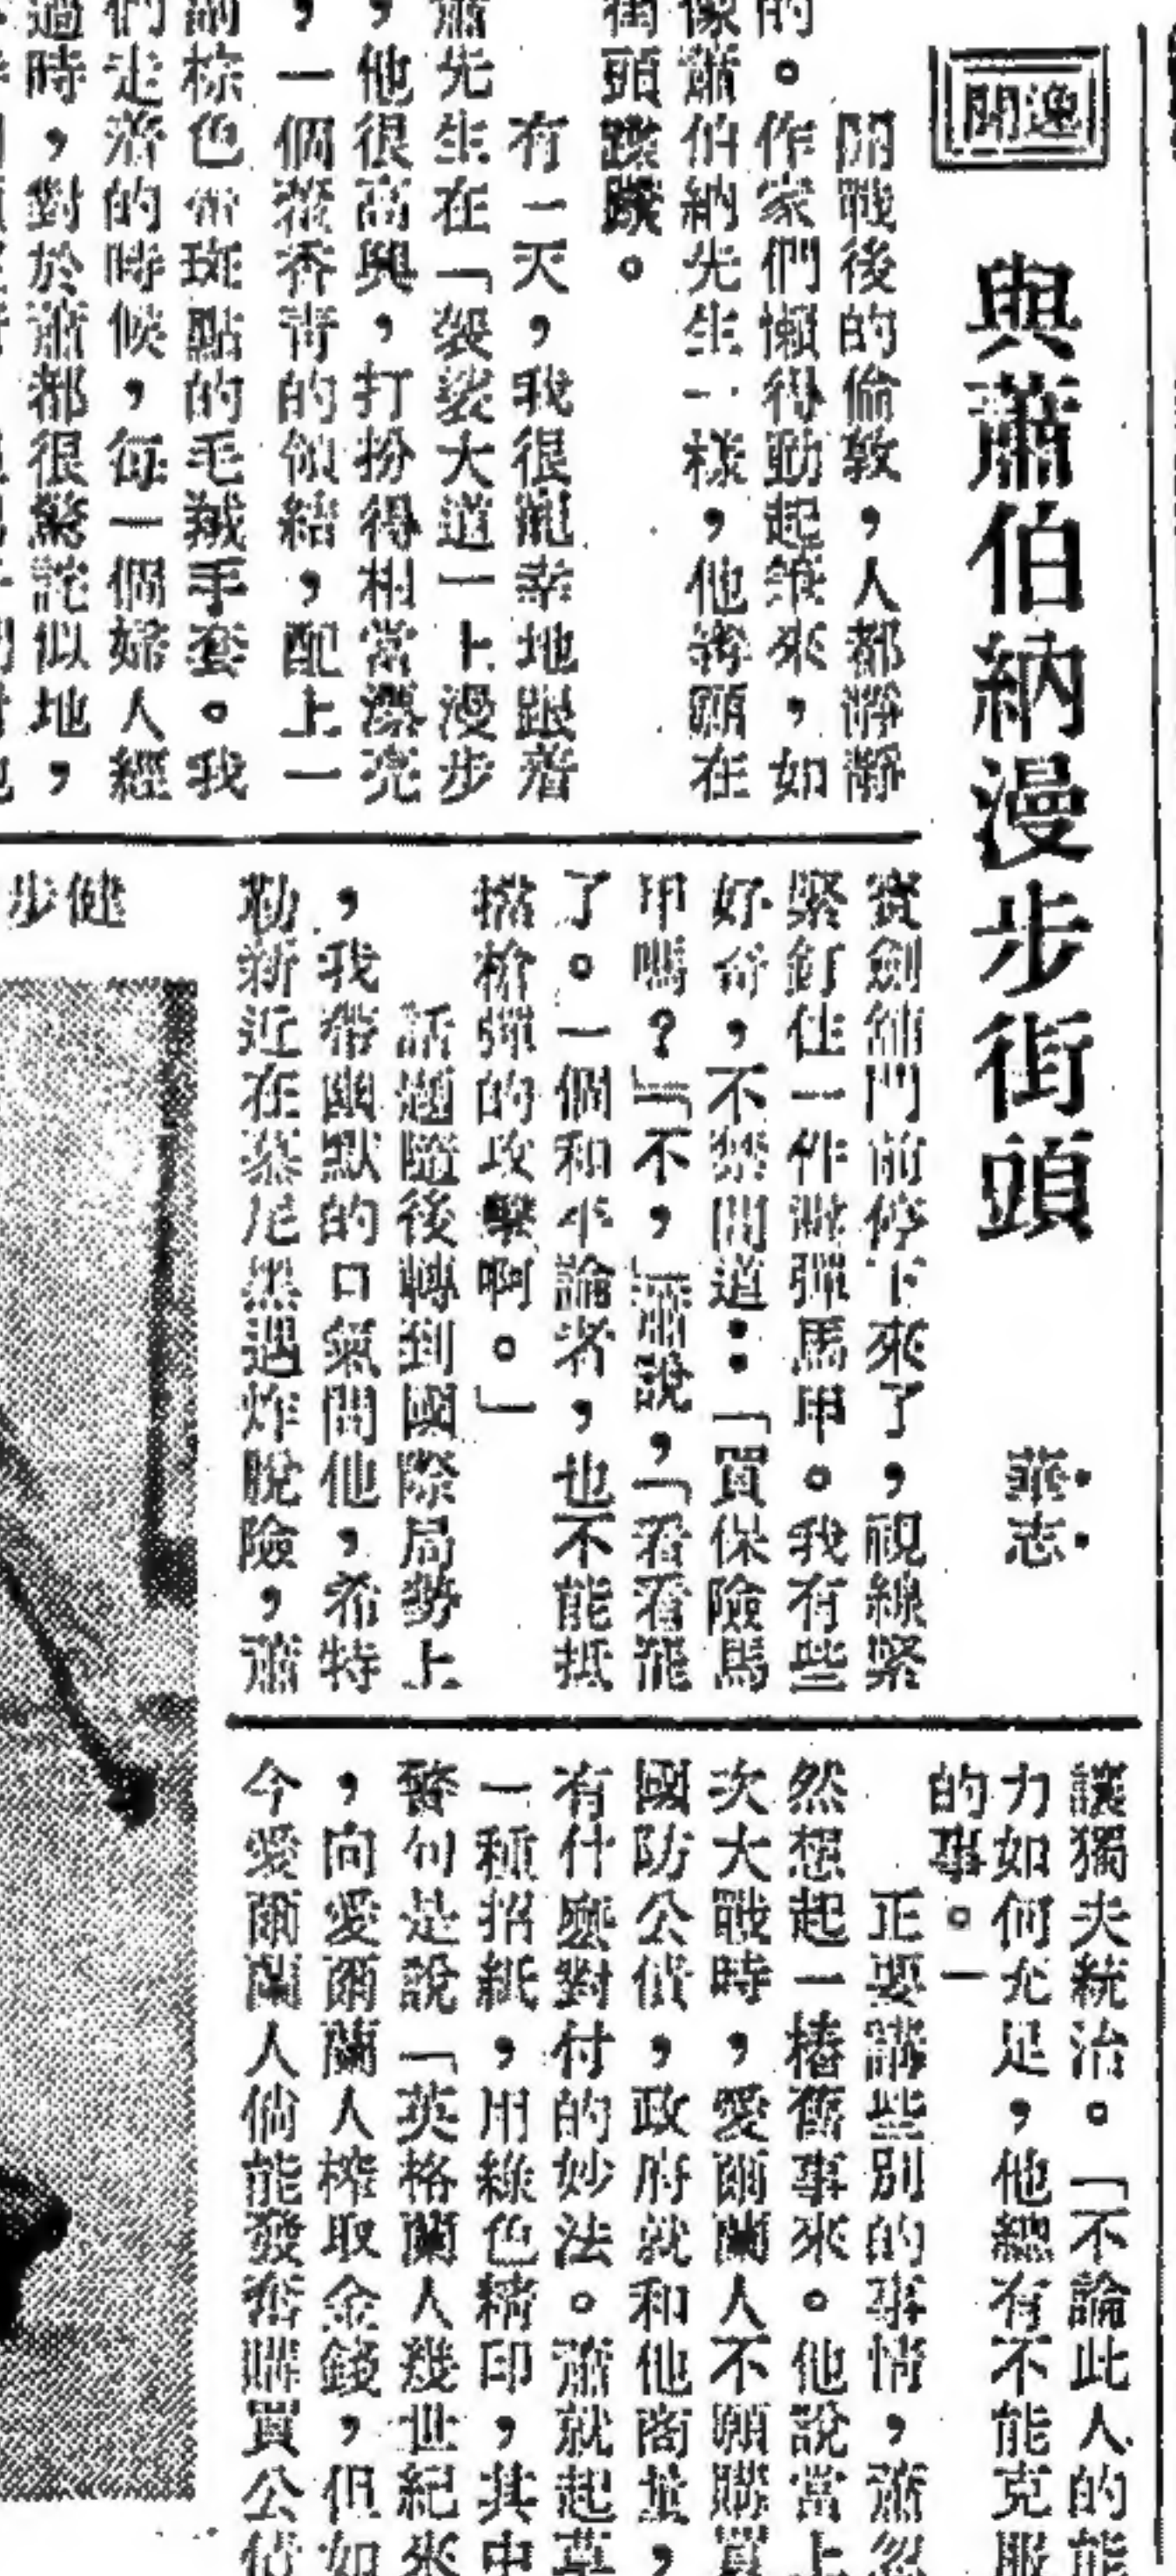 逸聞
與蕭伯納漫步街頭
華志
開戰後的倫敦，人都靜靜
的。作家們懶得動起筆來，如
像蕭伯納先生一樣，他寧願在
街頭蹀躞。
有一天，我很寵幸地跟着
蕭先生在「袈裟大道」上漫步
，他很高興，打扮得相當漂亮
，一個藏香青的領結，配上一
副棕色帶斑點的毛羢手套。我
們走着的時候，每一個婦人經
過時，對於蕭都很驚詫似地，
寶劍舖門前停下來了，視線緊
緊釘住一件避彈馬甲。我有些
好奇，不禁問道：「買保險馬
甲嗎？」「不，」蕭說，「看看罷
了。一個和平論者，也不能抵
擋槍彈的攻擊啊。」
話題隨後轉到國際局勢上
，我帶幽默的口氣問他，希特
勒新近在慕尼黑遇炸脫險，蕭
健步
讓獨夫統治。「不論此人的能
力如何充足，他總有不能克服
的事。」
正要講些別的事情，蕭忽
然想起一樁舊事來。他說當上
次大戰時，愛爾蘭人不願購買
國防公債，政府就和他商量，
有什麼對付的妙法。蕭就起草
一種招紙，用綠色精印，其中
警句是說「英格蘭人幾世紀來
，向愛爾蘭人榨取金錢，但如
今愛爾蘭人倘能發奮購買公債